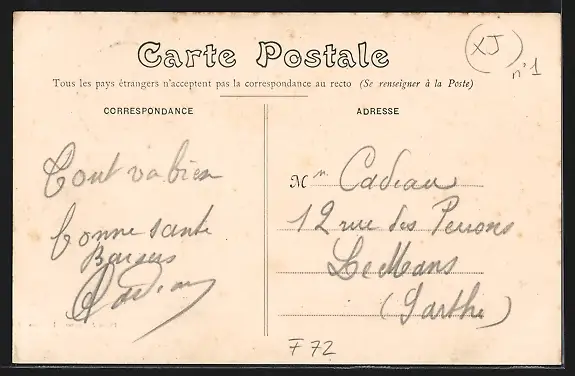 Carte Postale
(XJ)
n°1
Tous les pays étrangers n'acceptent pas la correspondance au recto (Se renseigner à la Poste)
CORRESPONDANCE
ADRESSE
Tout va bien
bonne santé
Baisers
Cadeau
Mr Cadeau
12 rue des Perrons
Le Mans
(Sarthe)
F 72